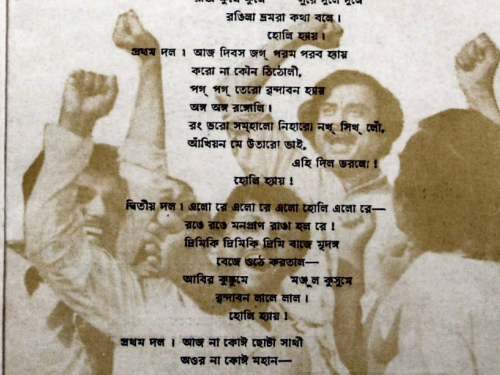 রঙিলা ভ্রমরা কথা বলে।
হোলি হ্যায়।
প্রথম দল। আজ দিবস জগ্ পরম পরব হ্যায়
করো না কৌন ঠিঠোলী,
পগ্ পগ্ তেরো বৃন্দাবন হ্যায়
অঙ্গ অঙ্গ রঙ্গোলি।
রং ভরো সম্হালো নিহারো নখ্ সিখ্ লোঁ,
আঁখিয়ন মে উতারো ভাই,
এহি দিল ভরলো!
হোলি হ্যায়!
দ্বিতীয় দল। এলো রে এলো রে এলো হোলি এলো রে—
রঙে রঙে মনপ্রাণ রাঙা হল রে!
দ্রিমিকি দ্রিমিকি দ্রিমি বাজে মৃদঙ্গ
বেজে ওঠে করতাল—
আবির কুঙ্কুমে মঞ্জুল কুসুমে
বৃন্দাবন লালে লাল।
হোলি হ্যায়!
প্রথম দল। আজ না কোঈ ছোটা সাথী
অওর না কোঈ মহান—